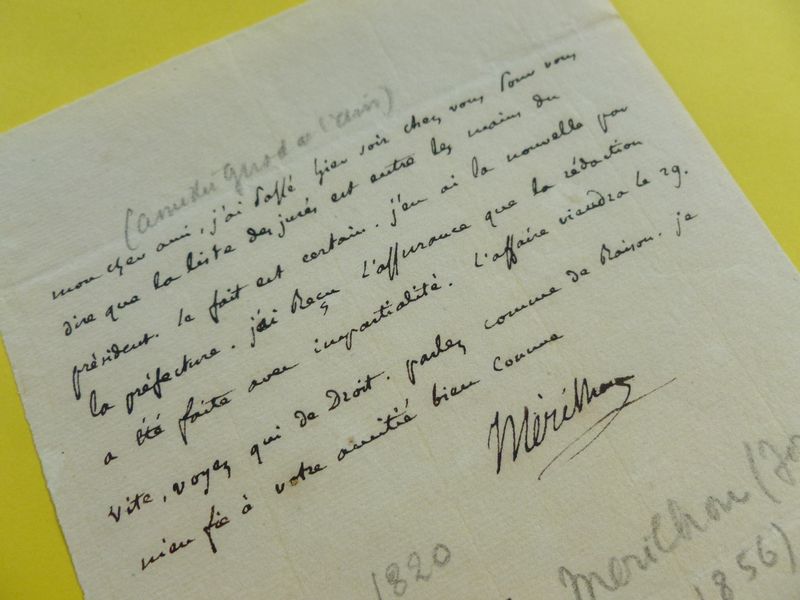 (amédée Girod de l'ain)
mon cher ami, j'ai passé hier soir chez vous pour vous
dire que la liste des jurés est entre les mains du
président. le fait est certain. j'en ai la nouvelle par
la préfecture. j'ai Reçu l'assurance que la rédaction
a été faite avec impartialité. l'affaire viendra le 29.
vite, voyez qui de Droit. parlez comme de Raison. je
m'en fie à votre amitié bien comme
Mérilhou
1820
Merilhou (Jo
1856)